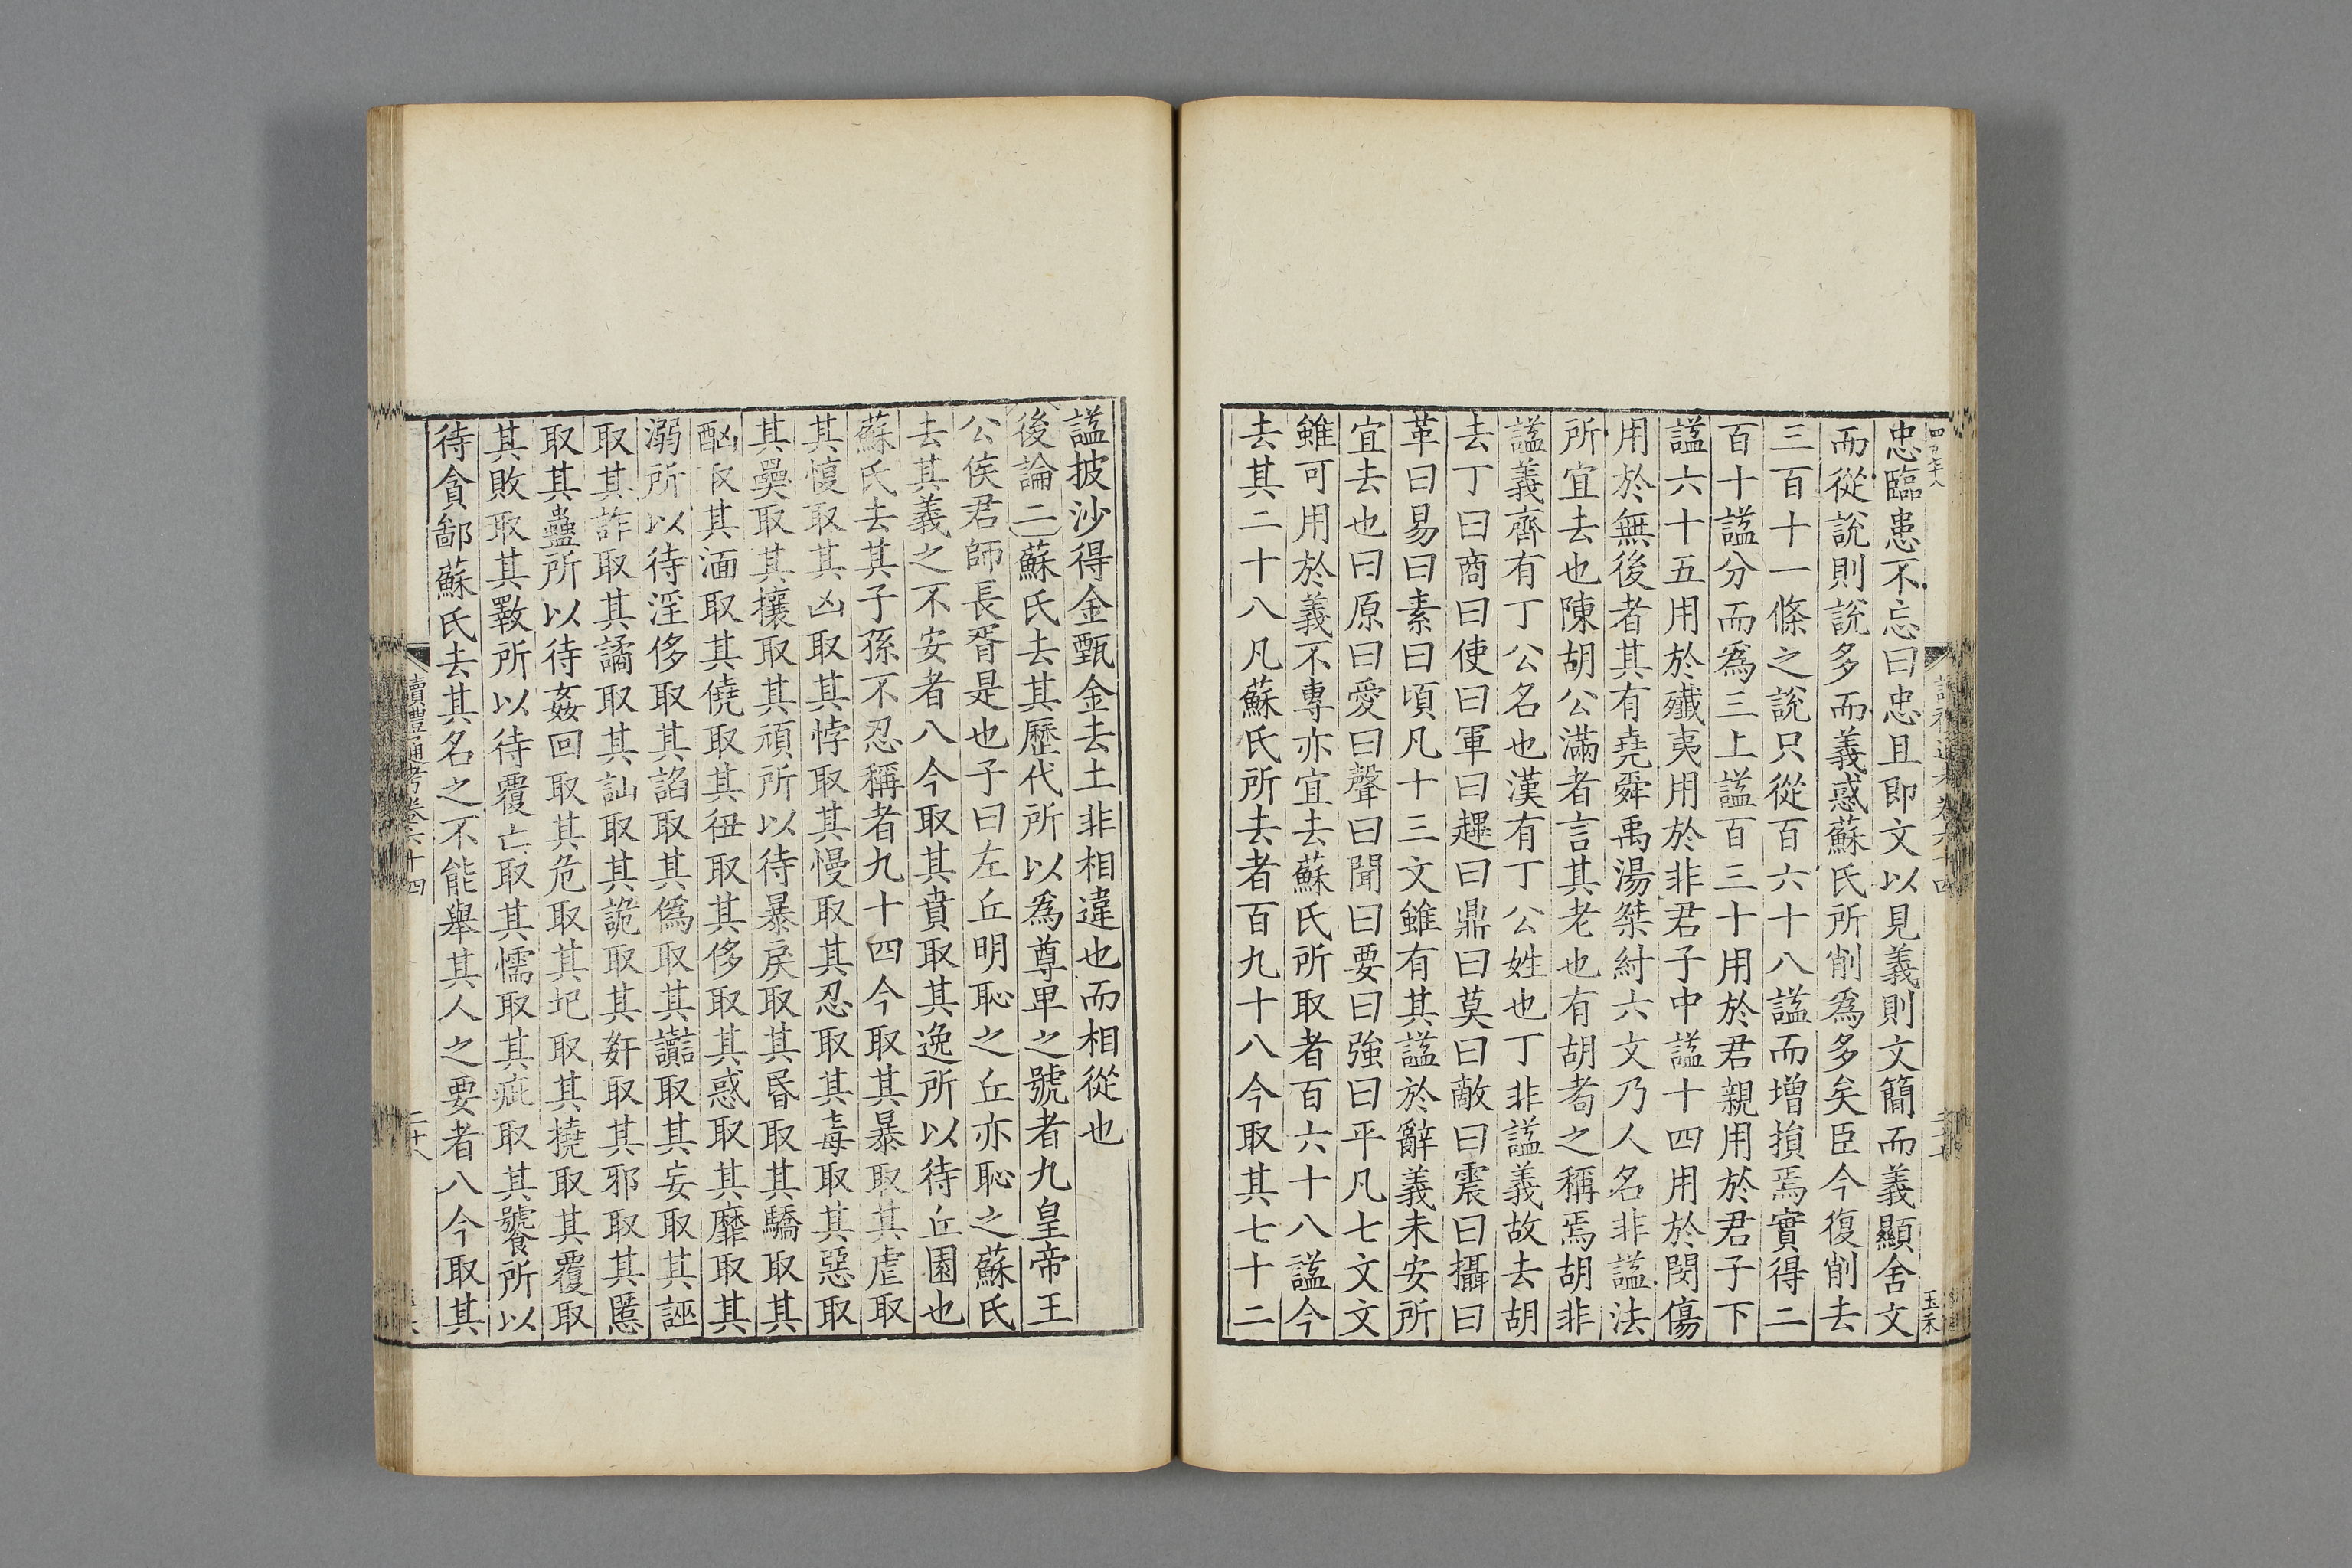 忠臨患不忘曰忠且即文以見義則文簡而義顯舍文
而從說則說多而義惑蘇氏所削為多矣臣今復削去
三百十一條之說只從百六十八諡而增損焉實得二
百十諡分而為三上諡百三十用於君親用於君子下
諡六十五用於殲夷用於非君子中諡十四用於閔傷
用於無後者其有堯舜禹湯桀紂六文乃人名非諡法
所宜去也陳胡公滿者言其老也有胡耇之稱焉胡非
諡義齊有丁公名也漢有丁公姓也丁非諡義故去胡
去丁曰商曰使曰軍曰趕曰鼎曰莫曰敵曰震曰攝曰
革曰易曰素曰頃凡十三文雖有其諡於辭義未安所
宜去也曰原曰愛曰聲曰聞曰要曰強曰平凡七文文
雖可用於義不專亦宜去蘇氏所取者百六十八諡今
去其二十八凡蘇氏所去者百九十八今取其七十二
諡披沙得金甄金去土非相違也而相從也
後論二蘇氏去其歷代所以為尊卑之號者九皇帝王
公侯君師長胥是也子曰左丘明恥之丘亦恥之蘇氏
去其義之不安者八今取其賁取其逸所以待丘園也
蘇氏去其子孫不忍稱者九十四今取其暴取其虐取
其愎取其凶取其悖取其慢取其忍取其毒取其惡取
其奰取其攘取其頑所以待暴戾取其昬取其驕取其
酗取其湎取其僥取其忸取其侈取其惑取其靡取其
溺所以待淫侈取其諂取其僞取其讟取其妄取其誣
取其詐取其譎取其訕取其詭取其姧取其邪取其慝
取其蠱所以待姦回取其危取其圮取其撓取其覆取
其敗取其斁所以待覆亡取其懦取其疵取其饕所以
待貪鄙蘇氏去其名之不能舉其人之要者八今取其
讀禮通考卷六十四
二十八